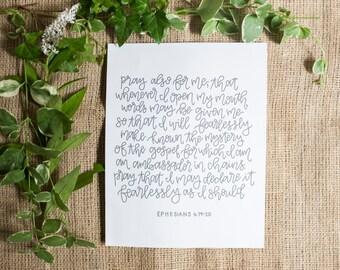 pray also for me, that
whenever I open my mouth
words may be given me
so that I will fearlessly
make known the mystery
of the gospel for which I am
an ambassador in chains.
pray that I may declare it
fearlessly as I should.
EPHESIANS 6:19-20